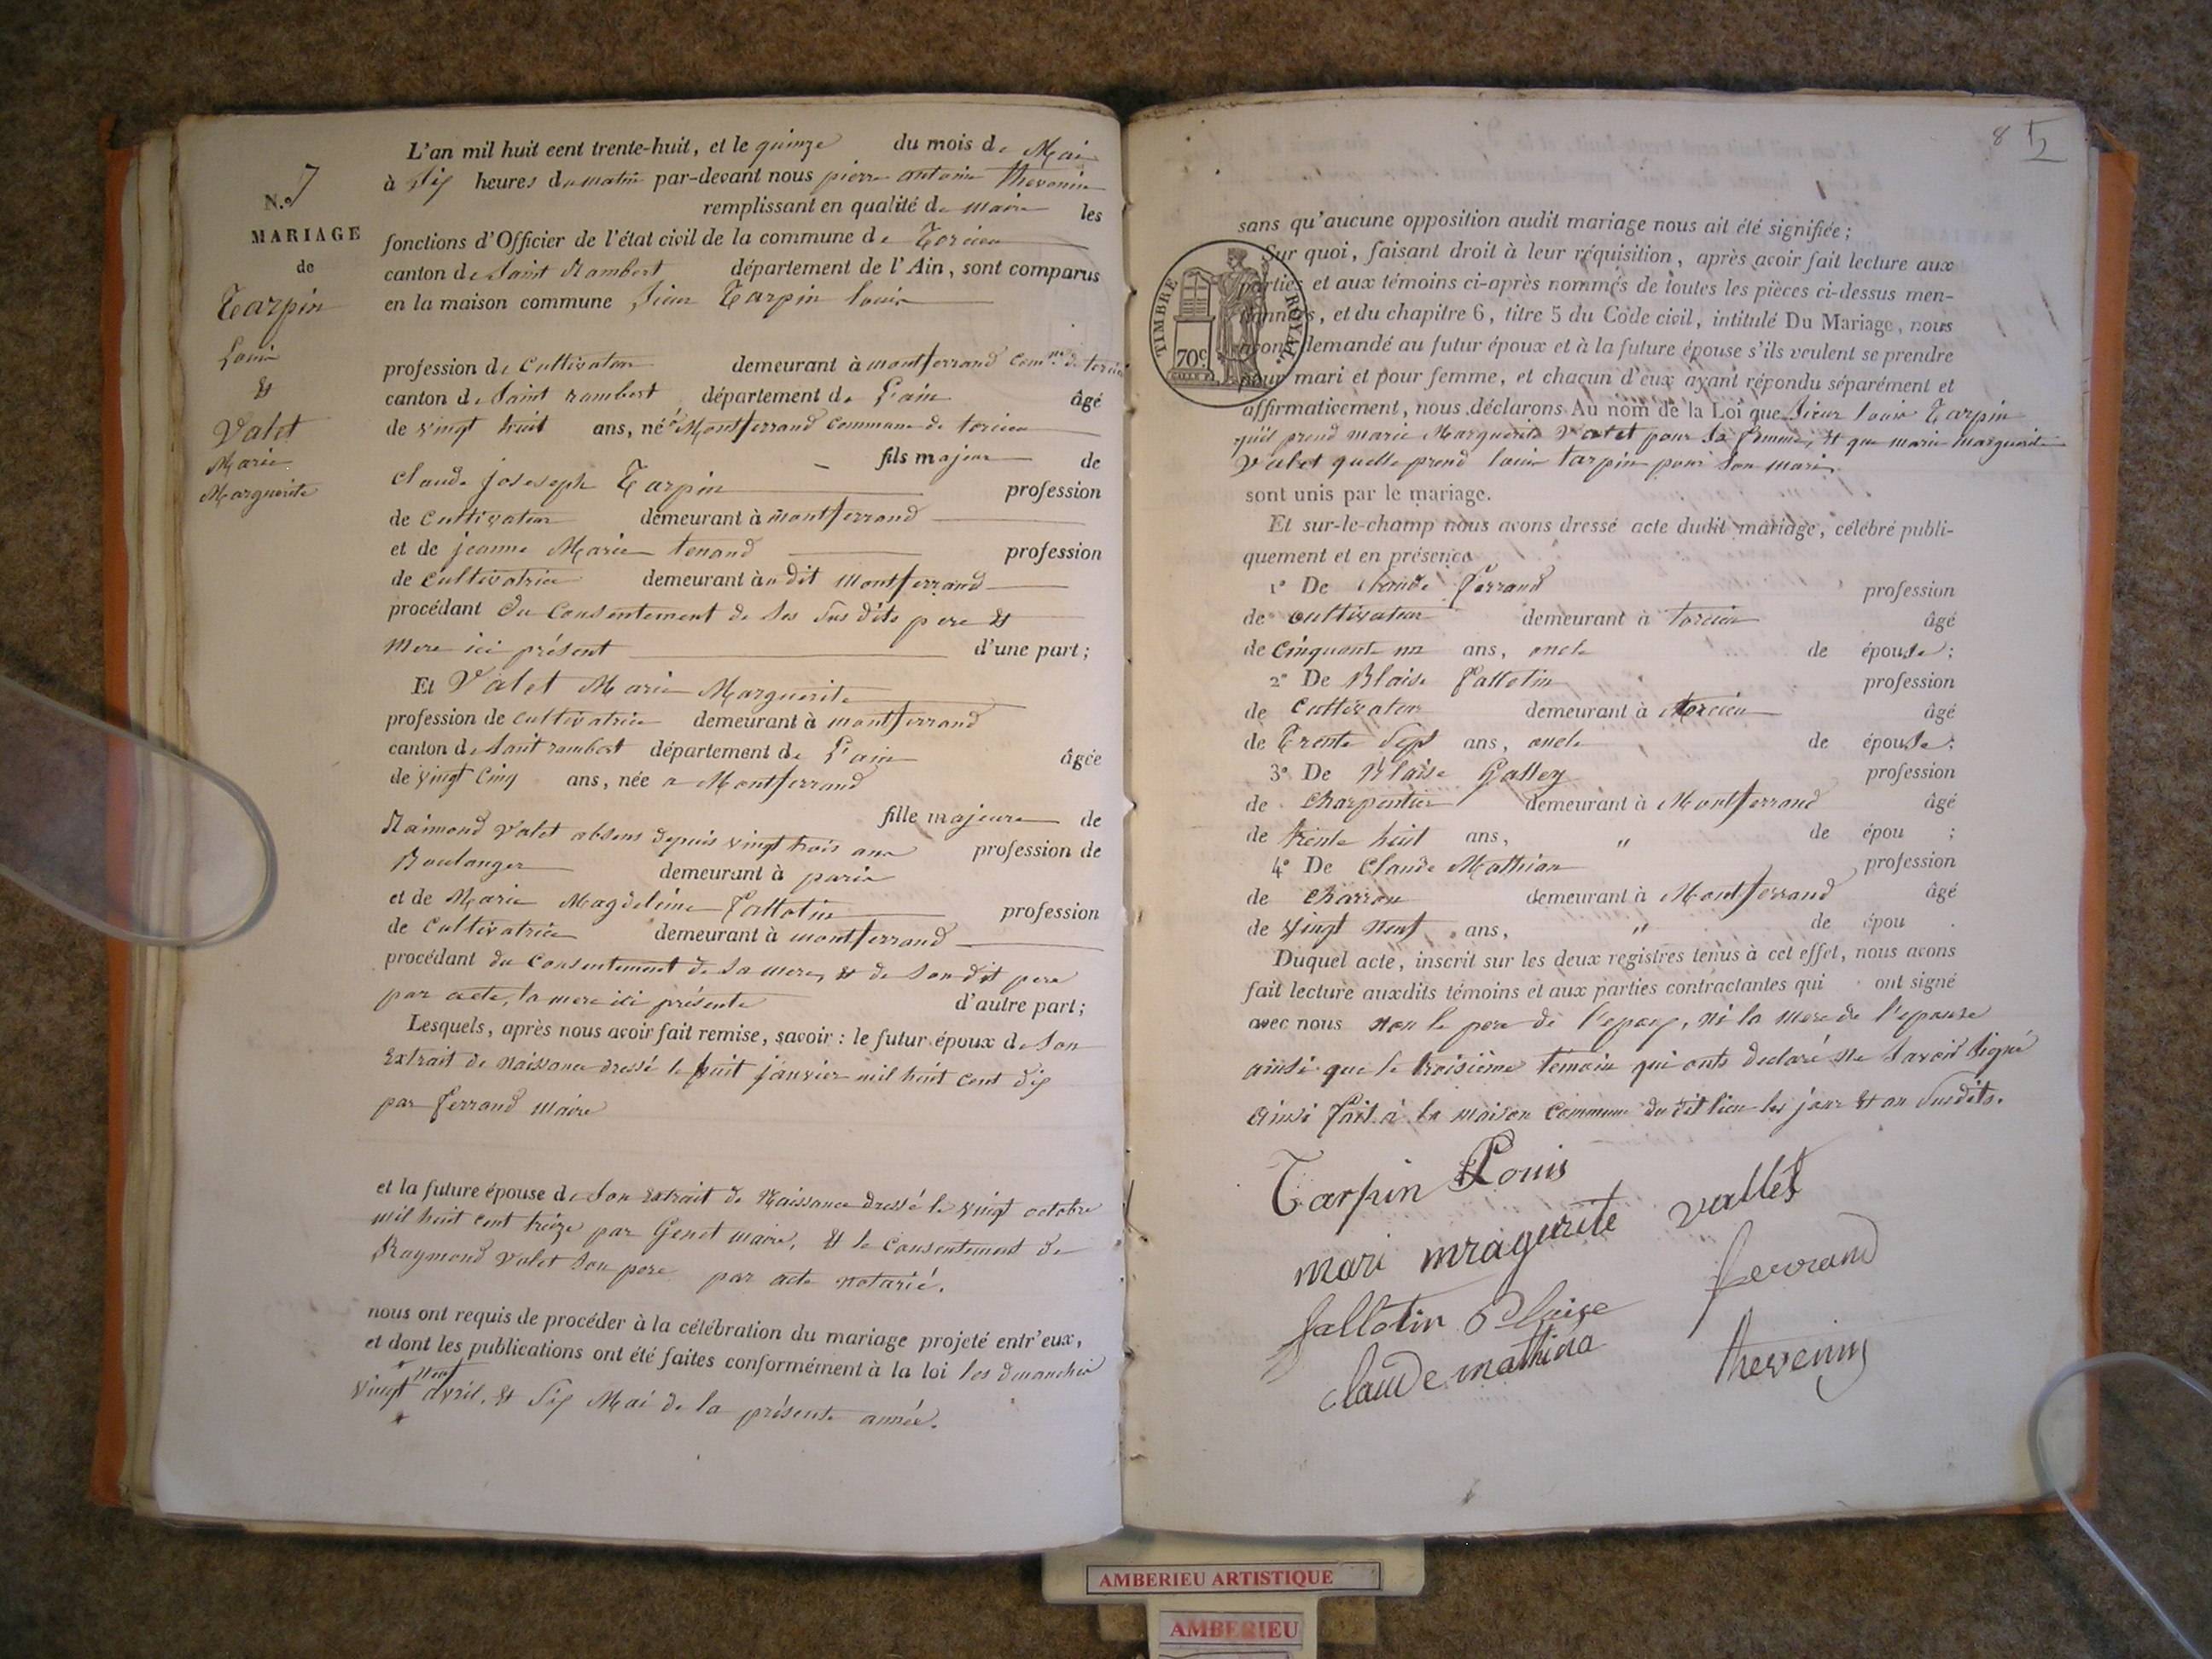 N.° 7
MARIAGE
de
Tarpin
Louis
&
Valet
Marie
Marguerite
L'an mil huit cent trente-huit, et le quinze du mois de Mai
à dix heures du matin par-devant nous pierre antoine thevenin
remplissant en qualité de maire les
fonctions d'Officier de l'état civil de la commune de Torcieu
canton de Saint Rambert département de l'Ain, sont comparus
en la maison commune Sieur Tarpin louis
profession de Cultivateur demeurant à montferrand com.ne de torcieu
canton de Saint rambert département de L'ain âgé
de vingt huit ans, né à Montferrand Commune de torcieu
fils majeur de
Claude joseseph Tarpin profession
de Cultivateur demeurant à montferrand
et de jeanne Marie tenand profession
de Cultivatrice demeurant au dit montferrand
procédant du Consentement de Ses Sus dits pere &
Mere ici présent d'une part;
Et Valet Marie Marguerite
profession de Cultivatrice demeurant à montferrand
canton de Saint rambert département de L'ain âgée
de vingt Cinq ans, née a Montferrand
fille majeure de
Raimond Valet absens depuis vingt trois ans profession de
Boulanger demeurant à paris
et de Marie Magdeleine fallotin profession
de Cultivatrice demeurant à montferrand
procédant du Consentement de Sa mere, & de Son dit pere
par acte, la mere ici présente d'autre part;
Lesquels, après nous avoir fait remise, savoir: le futur époux de Son
Extrait de Naissance dressé le huit janvier mil huit cent dix
par ferrand maire
et la future épouse de Son Extrait de Naissance dressé le vingt octobre
mil huit cent treize par Genet maire, & le Consentement de
Raymond Valet Son pere par acte notarié.
nous ont requis de procéder à la célébration du mariage projeté entr'eux,
et dont les publications ont été faites conformément à la loi les dimanches
vingt neuf avril, & Six Mai de la présente année.
8 12
sans qu'aucune opposition audit mariage nous ait été signifiée;
Sur quoi, faisant droit à leur réquisition, après avoir fait lecture aux
parties et aux témoins ci-après nommés de toutes les pièces ci-dessus men-
tionnées, et du chapitre 6, titre 5 du Code civil, intitulé Du Mariage, nous
avons demandé au futur époux et à la future épouse s'ils veulent se prendre
pour mari et pour femme, et chacun d'eux ayant répondu séparément et
affirmativement, nous déclarons Au nom de la Loi que Sieur louis Tarpin
qu'il prend marie Marguerite Valet pour Sa femme, & que marie marguerite
Valet quelle prend louis tarpin pour Son mari
sont unis par le mariage.
Et sur-le-champ nous avons dressé acte dudit mariage, célébré publi-
quement et en présence
1° De Claude ferrand profession
de cultivateur demeurant à torcieu âgé
de Cinquante un ans, oncle de épouse;
2° De Blaise fallotin profession
de Cultivateur demeurant à torcieu âgé
de Trente Sept ans, oncle de épouse;
3° De Blaise Galley profession
de Charpentier demeurant à Montferrand âgé
de trente huit ans, " de épou ;
4° De Claude Mathian profession
de Charron demeurant à Montferrand âgé
de vingt Neuf ans, " de épou .
Duquel acte, inscrit sur les deux registres tenus à cet effet, nous avons
fait lecture auxdits témoins et aux parties contractantes qui ont signé
avec nous Non le pere de l'epoux, Ni la Mere de l'epouse
ainsi que le troisième témoin qui onts declaré Ne Savoir Signé
ainsi fait à la maison Commune du dit lieu les jour & an Susdits.
TIMBRE ROYAL.
70c
Tarpin Louis
mari mragurite vallet
fallotin Blaise ferrand
Claude mathian thevenin
AMBERIEU ARTISTIQUE
AMBERIEU